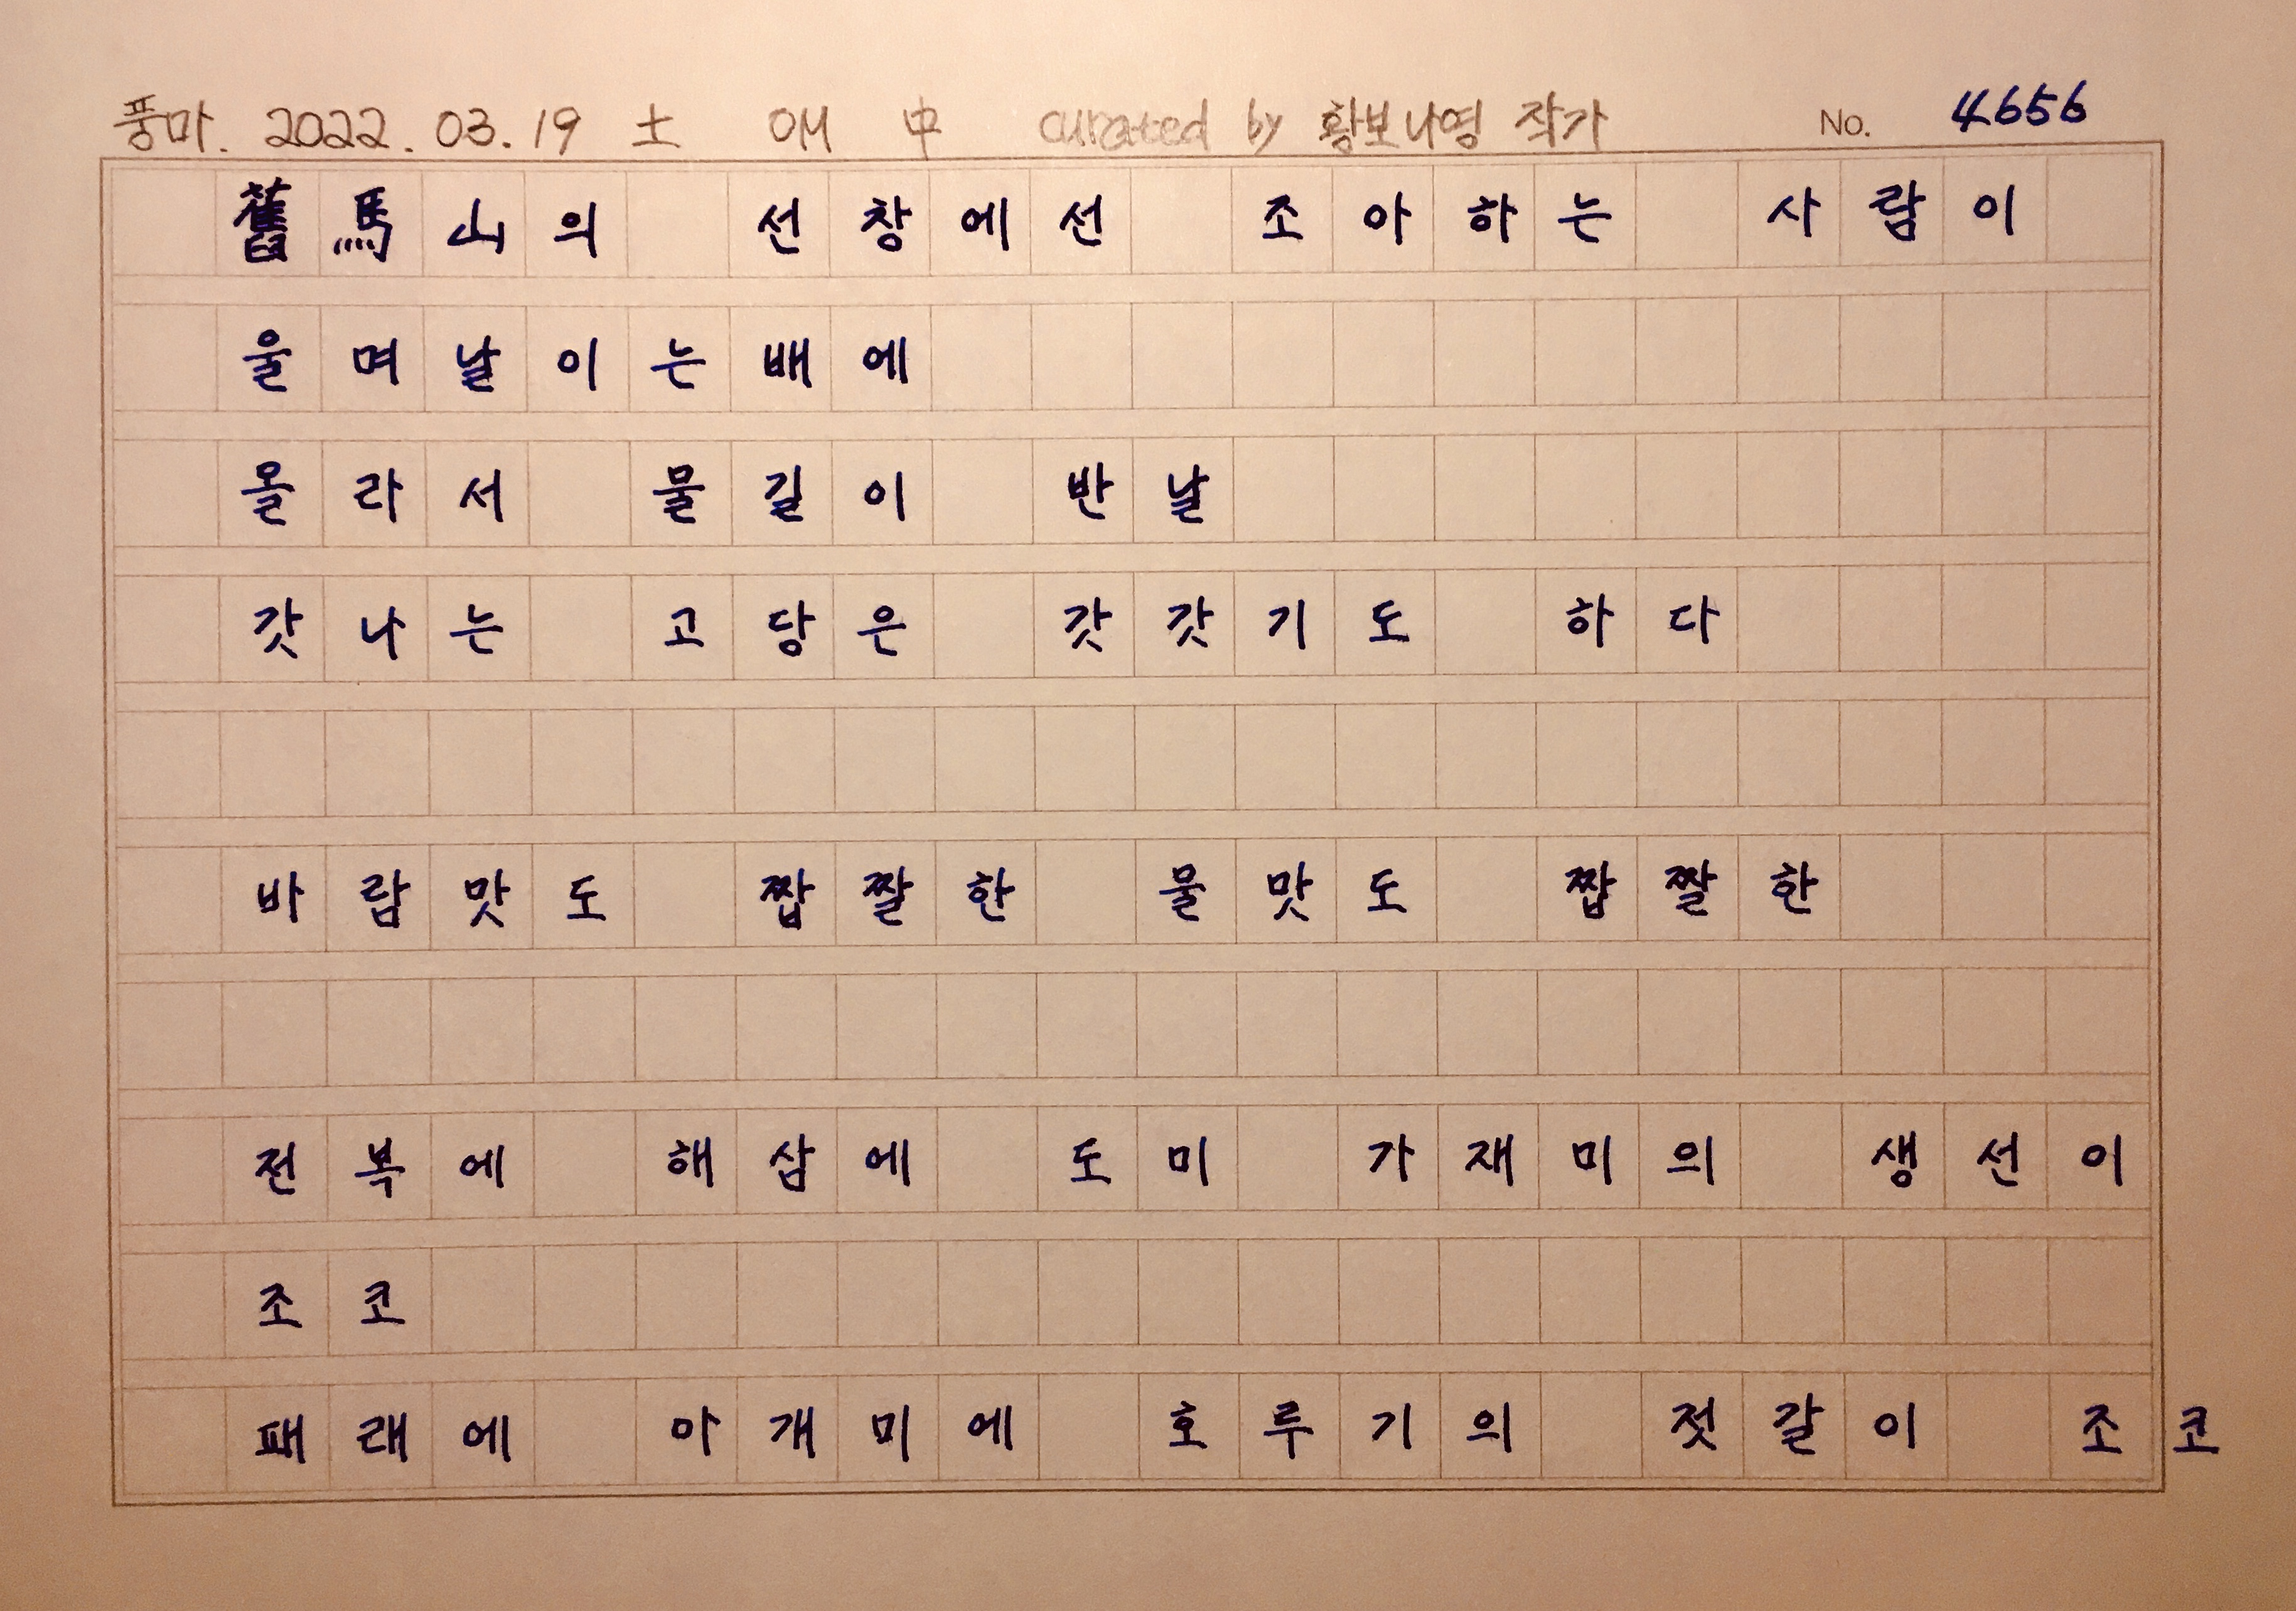 풍마. 2022. 03. 19 土 애 中 curated by 황보나영 작가 No. 4656
舊馬山의 선창에선 조아하는 사람이
울며날이는배에
올라서 물길이 반날
갓나는 고당은 갓갓기도 하다
바람맛도 짭짤한 물맛도 짭짤한
전복에 해삼에 도미 가재미의 생선이
조코
패래에 아개미에 호루기의 젓갈이 조코